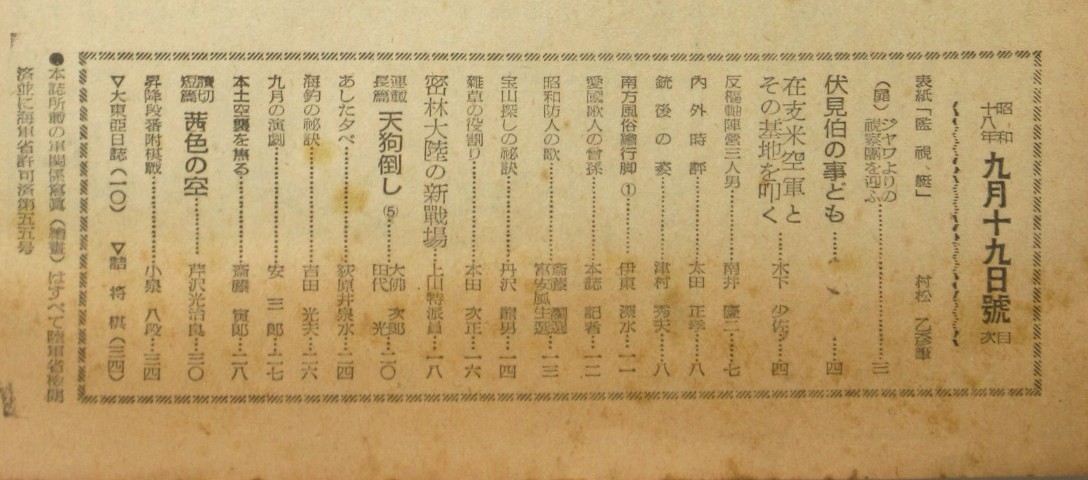 昭和十八年九月十九日號目次
表紙「監視艇」 村松 乙彦筆
(扉)ジャワよりの視察團を迎ふ……三
伏見伯の事ども…………四
在支米空軍とその基地を叩く…木下 少佐…四
反樞軸陣營三人男…南井 慶二…七
內外時評…太田 正孝…八
銃後の姿…津村 秀夫…八
南方風俗繪行脚①…伊東 深水…一一
愛國歌人の曾孫…本誌 記者…一二
昭和防人の歌…齋藤 瀏選 富安風生選…一三
宝山探しの祕訣…丹沢 龍男…一四
雜草の役割り…本田 次正…一六
密林大陸の新戰場…上山特派員…一八
連載長篇 天狗倒し(5)…大佛 次郎 田代 光…二〇
あしたタベ…荻原井泉水…二四
海釣の祕訣…吉田 光夫…二六
九月の演劇…安 三郎…二七
本土空襲を焦る…齋藤 寅郎…二八
讀切短篇 茜色の空…芹沢光治良…三〇
昇降段番附棋戰…小泉 八段…三四
▽大東亞日誌(一〇) ▽詰將棋(三四)
●本誌所載の軍關係寫眞(繪畫)はすべて陸軍省檢閱
濟並に海軍省許可濟第五五号